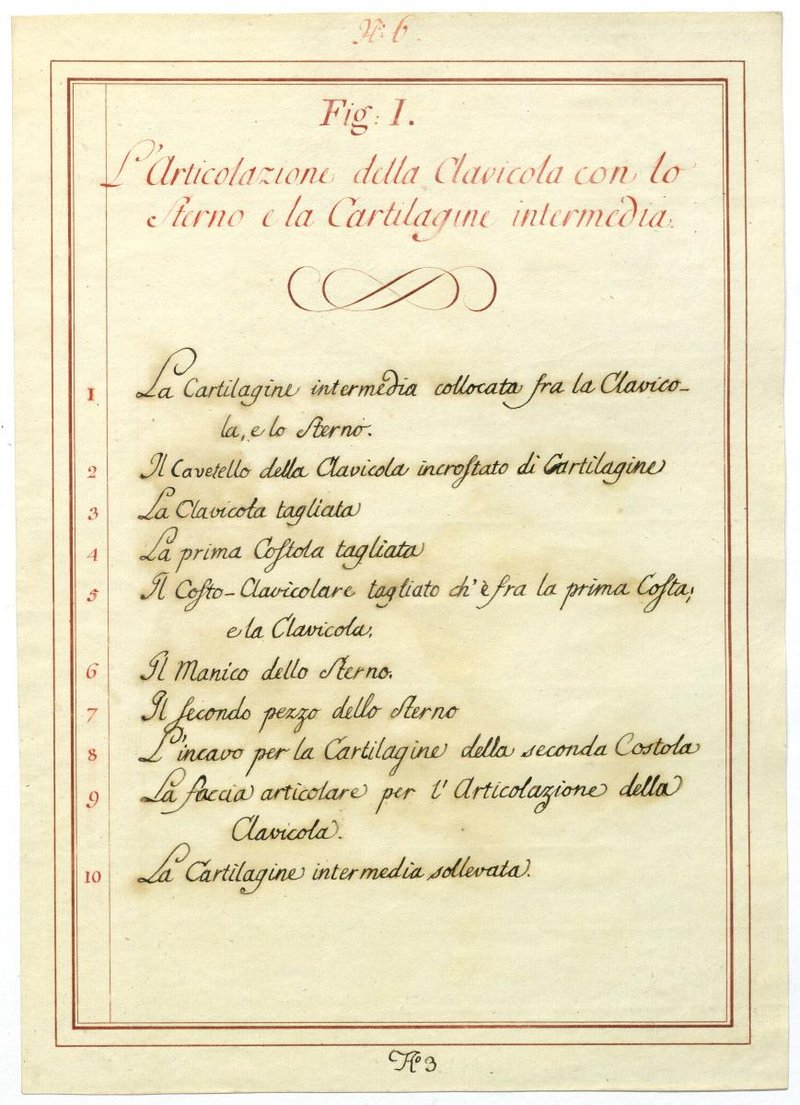 N.º 6.
Fig: I.
L'Articolazione della Clavicola con lo
Sterno e la Cartilagine intermedia.
1 La Cartilagine intermedia collocata fra la Clavico-
la, e lo Sterno.
2 Il Cavetello della Clavicola incroſtato di Cartilagine
3 La Clavicola tagliata
4 La prima Coſtola tagliata
5 Il Coſto-Clavicolare tagliato ch'è fra la prima Coſta;
e la Clavicola;
6 Il Manico dello Sterno.
7 Il ſecondo pezzo dello Sterno
8 L'incavo per la Cartilagine della seconda Costola
9 La faccia articolare per l'Articolazione della
Clavicola.
10 La Cartilagine intermedia sollevata.